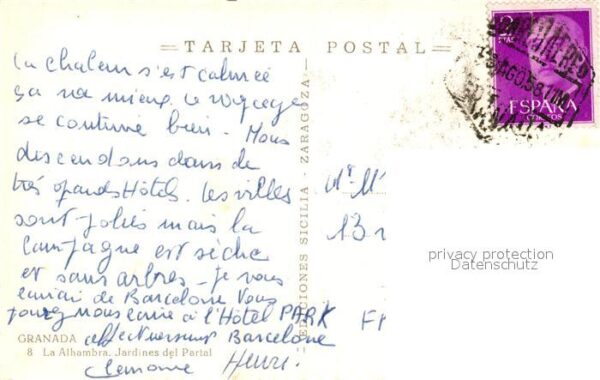 TARJETA POSTAL
La chaleur s'est calmée
ça va mieux. Le voyage
se continue bien. Nous
descendons dans de
très grands Hôtels. Les villes
sont jolies mais la
campagne est sèche
et sans arbres. Je vous
écrirai de Barcelone Vous
pouvez nous écrire à l'Hôtel PARK
affectueusement Barcelone
Henri.
GRANADA
8 La Alhambra. Jardines del Partal
EDICIONES SICILIA - ZARAGOZA
2
PTAS
ESPAÑA
CORREOS
AGO.58
Mr M
13 r
privacy protection
Datenschutz